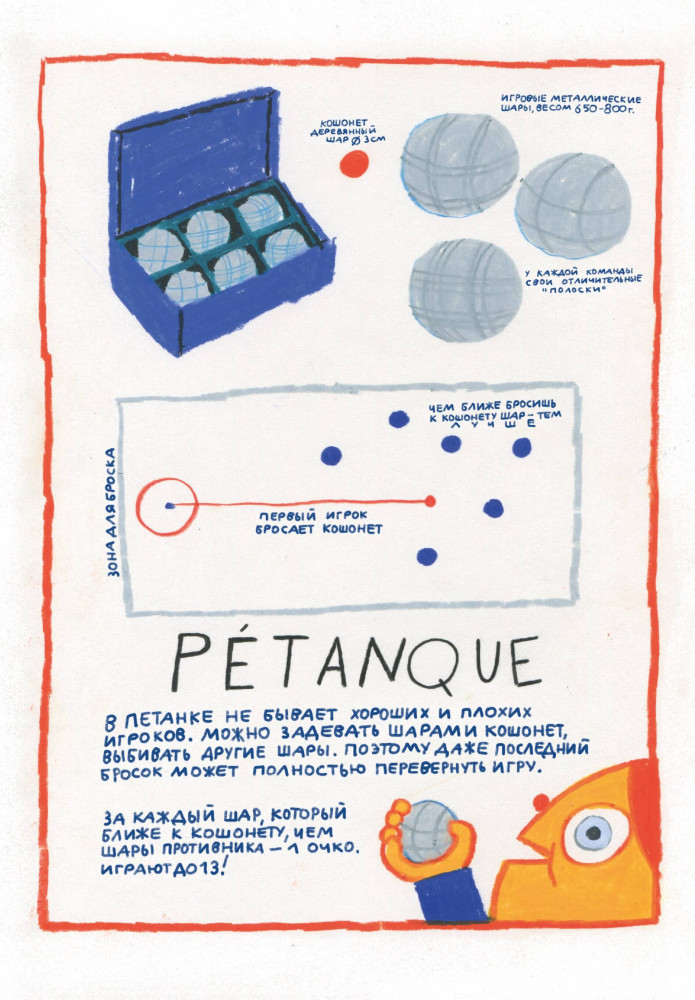 КОШОНЕТ -
ДЕРЕВЯННЫЙ
ШАР Ø 3СМ
ИГРОВЫЕ МЕТАЛЛИЧЕСКИЕ
ШАРЫ, ВЕСОМ 650-800г.
У КАЖДОЙ КОМАНДЫ
СВОИ ОТЛИЧИТЕЛЬНЫЕ
"ПОЛОСКИ"
ЧЕМ БЛИЖЕ БРОСИШЬ
К КОШОНЕТУ ШАР - ТЕМ
ЛУЧШЕ
ЗОНА ДЛЯ БРОСКА
ПЕРВЫЙ ИГРОК
БРОСАЕТ КОШОНЕТ
PÉTANQUE
В ПЕТАНКЕ НЕ БЫВАЕТ ХОРОШИХ И ПЛОХИХ
ИГРОКОВ. МОЖНО ЗАДЕВАТЬ ШАРАМИ КОШОНЕТ,
ВЫБИВАТЬ ДРУГИЕ ШАРЫ. ПОЭТОМУ ДАЖЕ ПОСЛЕДНИЙ
БРОСОК МОЖЕТ ПОЛНОСТЬЮ ПЕРЕВЕРНУТЬ ИГРУ.
ЗА КАЖДЫЙ ШАР, КОТОРЫЙ
БЛИЖЕ К КОШОНЕТУ, ЧЕМ
ШАРЫ ПРОТИВНИКА - 1 ОЧКО.
ИГРАЮТ ДО 13!